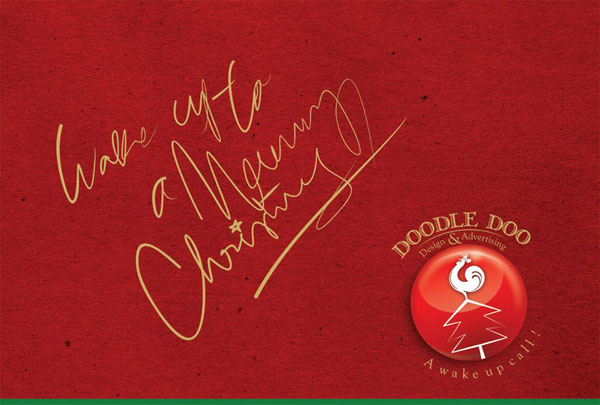 Wake up to
a Merry
Christmas
DOODLE DOO
Design & Advertising
A wake up call!